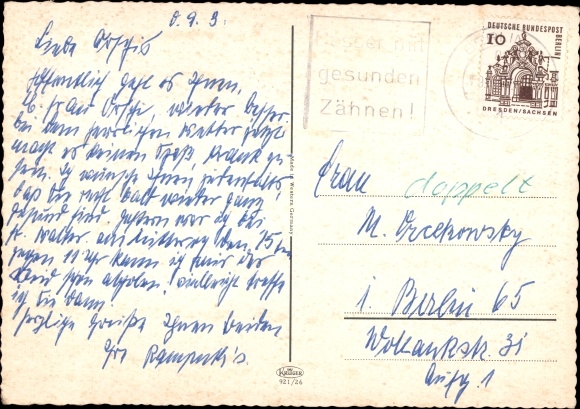 8.9.
Liebe Orschis
Hoffentlich geht es Ihnen,
lb. Frau Orschi, wieder besser.
bei dem herrlichen Wetter jetzt
macht es keinen Spaß, krank zu
sein. Ich wünsche Ihnen jedenfalls,
daß Sie recht bald wieder ganz
gesund sind. Gestern war ich bei
Fr. Walter. am Mittwoch den 15.
gegen 11 Uhr kann ich
schon abholen. vielleicht treffe
ich Sie dann.
herzliche Grüße Ihnen beiden
Ihre
Made in Western Germany
KRÜGER
921/26
gesunden
Zähnen!
DEUTSCHE BUNDESPOST
BERLIN
10
DRESDEN/SACHSEN
Frau doppelt
M. Orzekowsky
1. Berlin 65
Wollankstr. 31
Aufg. 1